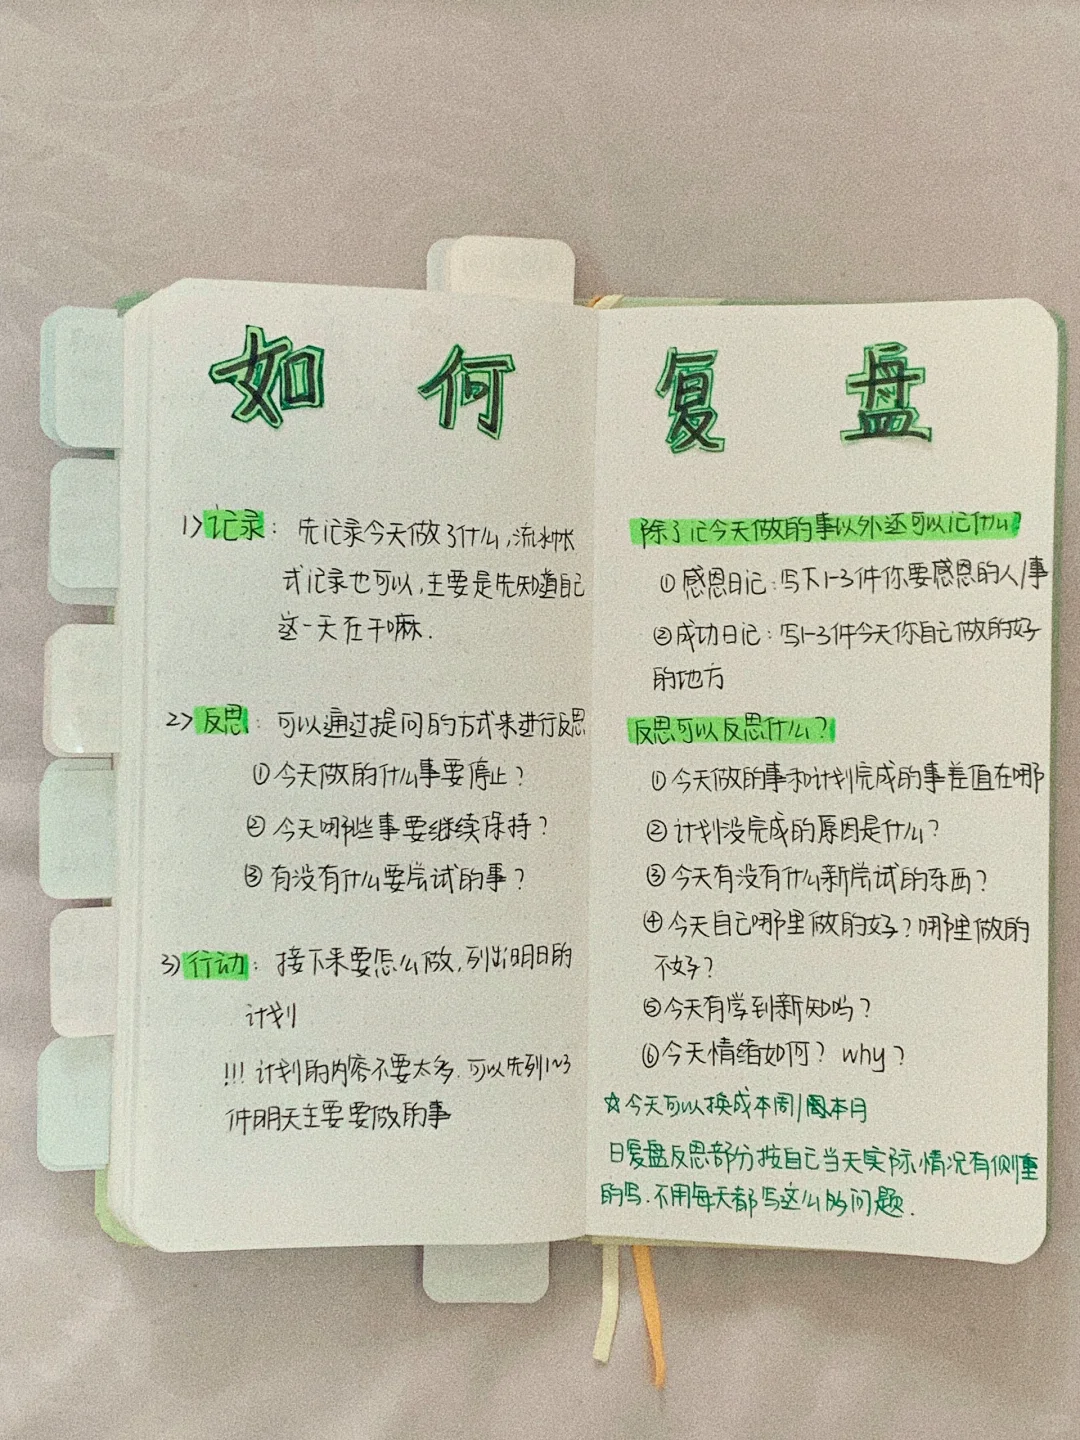 如何复盘
1>记录：先记录今天做了什么,流水帐
式记录也可以,主要是先知道自己
这一天在干嘛.
2>反思：可以通过提问的方式来进行反思
①今天做的什么事要停止？
②今天哪些事要继续保持？
③有没有什么要尝试的事？
3)行动：接下来要怎么做,列出明日的
计划
!!!计划的内容不要太多.可以先列1~3
件明天主要要做的事
除了记今天做的事以外还可以记什么？
①感恩日记：写下1-3件你要感恩的人/事
②成功日记：写1-3件今天你自己做的好
的地方
反思可以反思什么？
①今天做的事和计划完成的事差值在哪
②计划没完成的原因是什么？
③今天有没有什么新尝试的东西？
④今天自己哪里做的好？哪里做的
不好？
⑤今天有学到新知吗？
⑥今天情绪如何？why？
☆今天可以换成本周/本月
日复盘反思部分按自己当天实际情况有侧重
的写.不用每天都写这么多问题.